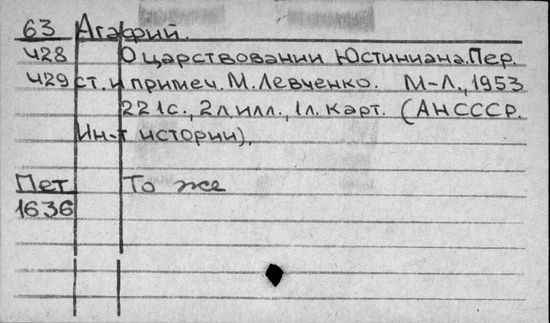 63 Агафий.
428 О царствовании Юстиниана. Пер.
429 ст. и примеч. М. Левченко. М-Л., 1953
221с., 2л. илл., 1л. карт. (АН СССР.
Ин-т истории).
Пет То же
1636